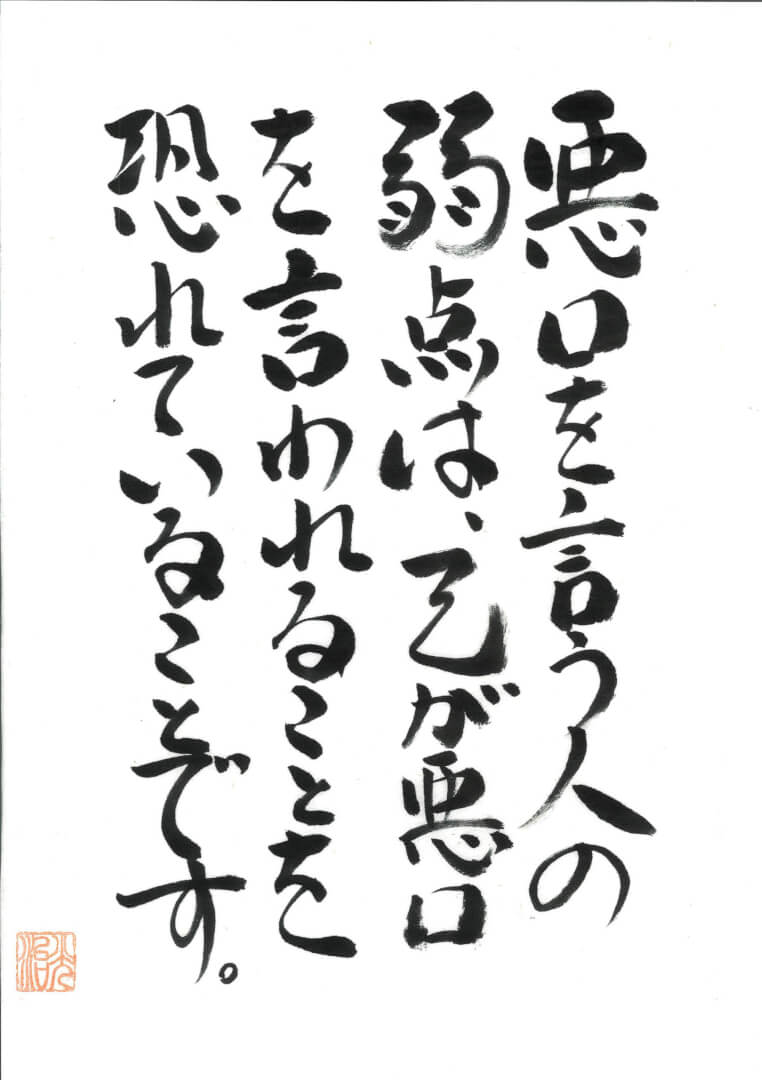 悪口を言う人の
弱点は、己が悪口
を言われることを
恐れていることです。